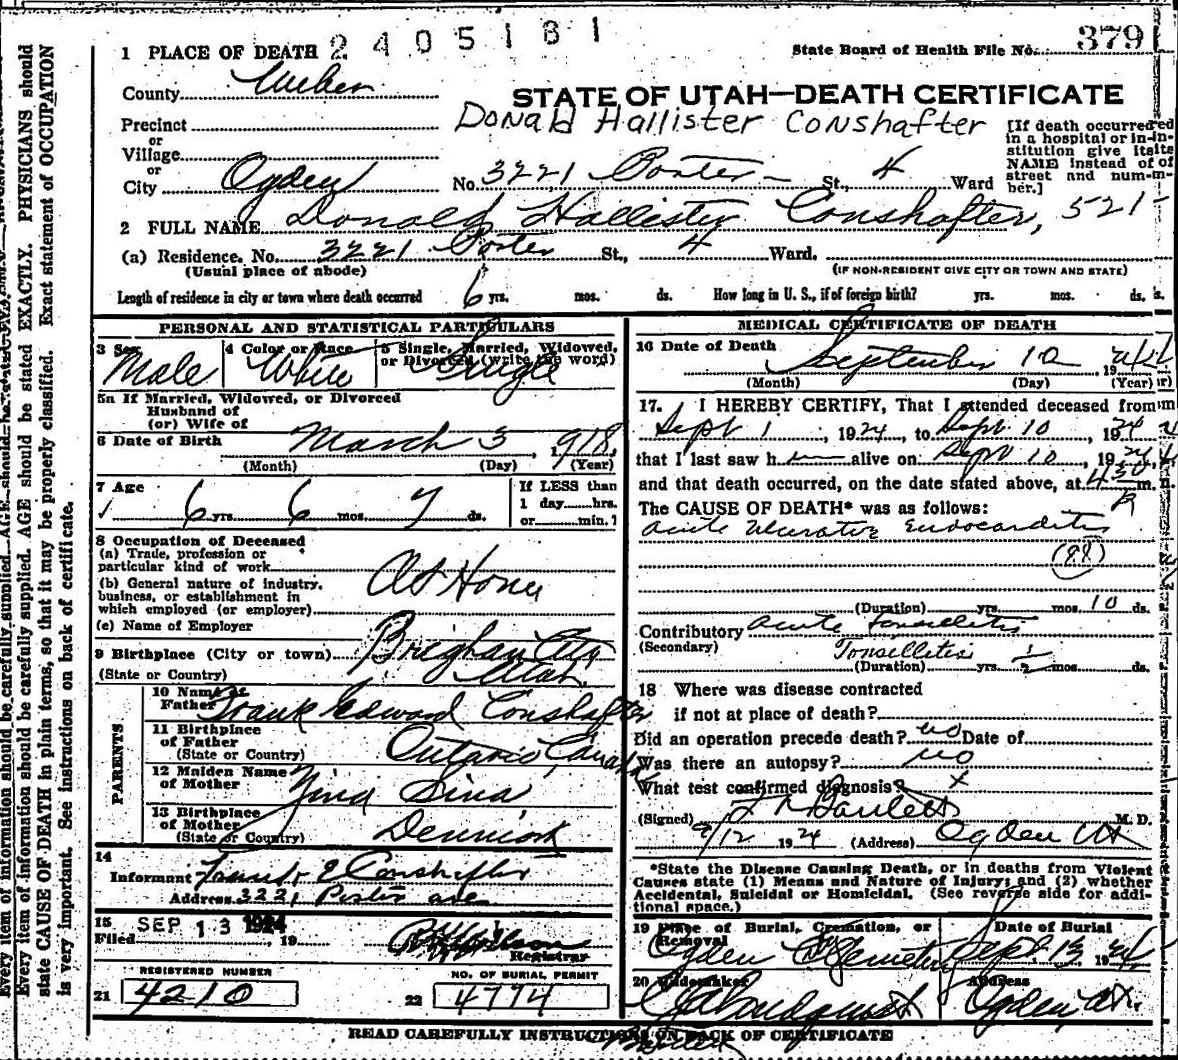 379
2405181
State Board of Health File No.
1 PLACE OF DEATH
County Weber
STATE OF UTAH—DEATH CERTIFICATE
Donald Hallister Conshafter
Precinct
or
Village
or
City Ogden No. 3221 Porter St., 4 Ward
[If death occurred
in a hospital or in-in-
stitution give its its
NAME instead of of
street and num-m-
ber.]
2 FULL NAME Donald Hallister Conshafter, 521-
(a) Residence. No. 3221 Porter St., 4 Ward.
(Usual place of abode)
(IF NON-RESIDENT GIVE CITY OR TOWN AND STATE)
Length of residence in city or town where death occurred 6 yrs. mos. ds. How long in U. S., if of foreign birth? yrs. mos. ds.
PERSONAL AND STATISTICAL PARTICULARS
3 Sex
Male
4 Color or Race
White
5 Single, Married, Widowed,
or Divorced (write the word)
Single
5a If Married, Widowed, or Divorced
Husband of
(or) Wife of
6 Date of Birth March 3, 1918
(Month) (Day) (Year)
7 Age
6 yrs. 6 mos. 7 ds.
If LESS than
1 day......hrs.
or......min.?
8 Occupation of Deceased
(a) Trade, profession or
particular kind of work
(b) General nature of industry,
business, or establishment in
which employed (or employer)
At Home
(c) Name of Employer
9 Birthplace (City or town) Brigham City
(State or Country) Utah
PARENTS
10 Name of
Father Frank Edward Conshafter
11 Birthplace
of Father
(State or Country) Ontario, Canada
12 Maiden Name
of Mother Nina Sina
13 Birthplace
of Mother
(State or Country) Denmark
14
Informant Frank E Conshafter
Address 3221 Porter ave
15 SEP 13 1924
Filed , 19 Wilson
Registrar
REGISTERED NUMBER
21 4210
NO. OF BURIAL PERMIT
22 4774
MEDICAL CERTIFICATE OF DEATH
16 Date of Death September 10 1924
(Month) (Day) (Year)
17. I HEREBY CERTIFY, That I attended deceased from
Sept 1, 1924, to Sept 10, 1924
that I last saw h alive on Sept 10, 1924
and that death occurred, on the date stated above, at 4:30 m.
The CAUSE OF DEATH* was as follows:
Acute Ulcerative Endocarditis
(88)
(Duration) yrs. mos. 10 ds.
Contributory Acute Tonsellitis
(Secondary) Tonselletis
(Duration) yrs. ½ mos. ds.
18 Where was disease contracted
if not at place of death?
Did an operation precede death? no Date of
Was there an autopsy? no
What test confirmed diagnosis? x
(Signed) Bartlett M. D.
9/12 1924 (Address) Ogden Ut
*State the Disease Causing Death, or in deaths from Violent
Causes state (1) Means and Nature of Injury; and (2) whether
Accidental, Suicidal or Homicidal. (See reverse side for addi-
tional space.)
19 Place of Burial, Cremation, or
Removal
Ogden Cemetery
Date of Burial
Sept. 13, 1924
20 Undertaker
Address
Ogden Ut.
READ CAREFULLY INSTRUCTIONS ON BACK OF CERTIFICATE
Every item of information should be carefully supplied. AGE should be stated EXACTLY. PHYSICIANS should
state CAUSE OF DEATH in plain terms, so that it may be properly classified. Exact statement of OCCUPATION
is very important. See instructions on back of certificate.